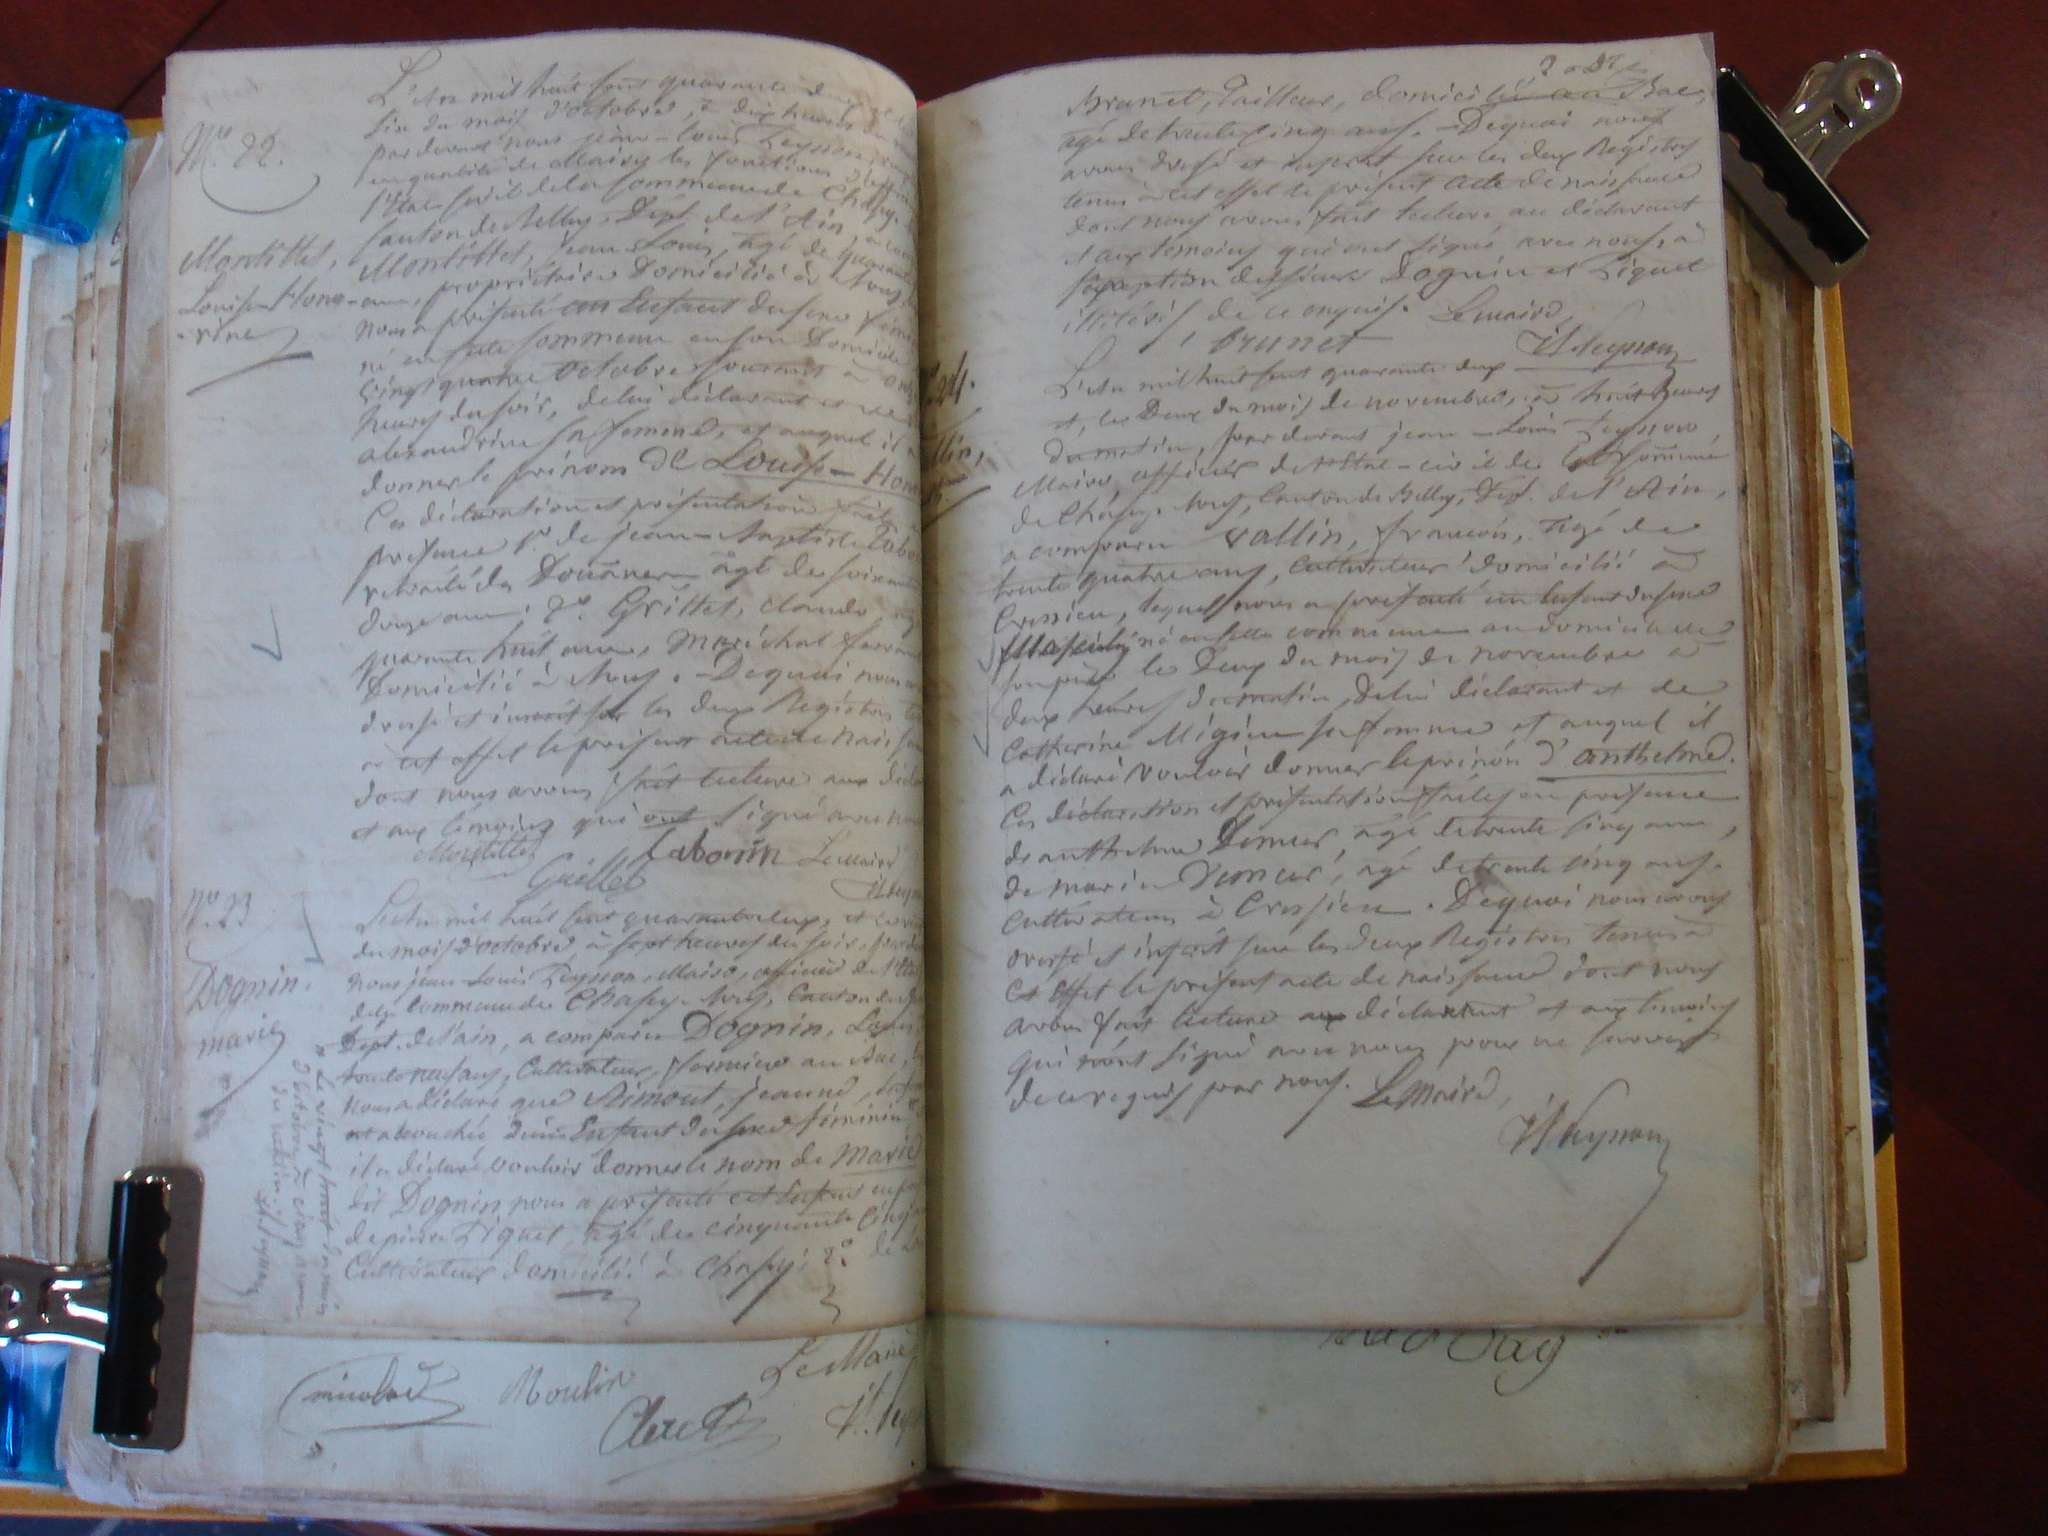 N.o 22.
Montillet,
Louise Hono-
-rine
L'An mil huit cent quarante deux et le
six du mois d'octobre, à dix heures du
par devant nous jean-Louis Peysson,
en qualité de Maire les fonctions d'offi
l'état civil de la Commune de Chazey-
Canton de Belley, Dépt. de l'Ain, a com
Montillet, jean Louis, agé de quarante
ans, propriétaire Domicilié à Mons
nous a présenté un Enfant du sexe fémi
né en cette Commune en son Domicile
cinq octobre courant à onze
heures du soir, de lui déclarant et de
alexandrine sa femme, et auquel il a
donner le prénom de Louise-Hono
Ces déclaration et présentation faites
présence 1.o de jean-Baptiste Labo
retraité des Douanes agé de soixante
douze ans; 2.o Grillet, claude ag
quarante huit ans, Maréchal ferrant
Domicilié à Mons. - De quoi nous a
dressé et inscrit sur les deux Registres te
à cet effet le présent acte de naissan
dont nous avons fait lecture aux décla
et aux témoins qui ont signé avec nous
Montillet Labonin Le Maire
Grillet
N.o 23
Dognin,
marie
L'An mil huit cent quarante deux, et le
du mois d'octobre à sept heures du soir, par de
nous jean-Louis Peysson, Maire, officier de l'Eta
de la commune de Chazey-Mons, Canton de Be
Dépt. de l'ain, a comparu Dognin, Louis
trente neuf ans, Cultivateur, fermier au Bac,
nous a déclaré que Aimont, jeanne, sa fem
est accouchée d'un Enfant du sexe féminin
il a déclaré vouloir donner le nom de Marie
dit Dognin nous a présenté cet Enfant en pré
de pierre Piquet, agé de cinquante cinq
Cultivateur domicilié à Chazey; 2.o de Lo
Le vingt huit du mois
d'octobre à cinq heures
du matin.
nicolas Moulin Le Maire
Clerc
Brunet, Tailleur, domicilié au Bac,
agé de trente cinq ans. - De quoi nous
avons dressé et inscrit sur les deux Registres
tenus à cet effet le présent acte de naissance
dont nous avons fait lecture au déclarant
et aux témoins qui ont signé avec nous, à
l'exception des sieurs Dognin et Piquet
illitérés de ce enquis. Le maire,
Brunet JLPeysson
24.
llin,
L'An mil huit cent quarante deux
et, le Deux du mois de novembre, à huit heures
du matin, par devant jean-Louis Peysson,
Maire, officier de l'Etat-civil de la Commune
de Chazey-Mons, Canton de Belley, Dépt. de l'Ain,
a comparu Vallin, francois, agé de
trente quatre ans, Cultivateur domicilié à
Cressieu, lequel nous a présenté un Enfant du sexe
Masculin né en cette commune au domicile de
son père le Deux du mois de novembre à
deux heures du matin, de lui déclarant et de
Catherine Migieu sa femme et auquel il
a déclaré vouloir donner le prénom d'anthelme.
Ces déclaration et présentation faites en présence
de anthelme Demeur, agé de trente cinq ans,
de marin Demeur, agé de trente cinq ans.
cultivateurs à Cressieu. De quoi nous avons
dressé et inscrit sur les deux Registres tenus à
cet effet le présent acte de naissance dont nous
avons fait lecture aux déclarant et aux témoins
qui n'ont signé avec nous pour ne savoir
de ce requis par nous. Le Maire,
JLPeysson